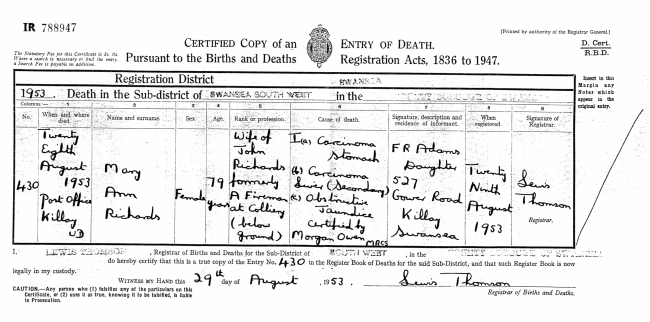 IR 788947
[Printed by authority of the Registrar General.]
CERTIFIED COPY of an ENTRY OF DEATH.
D. Cert.
R.B.D.
The Statutory Fee for this Certificate is 3s. 9d.
Where a search is necessary to find the entry,
a Search Fee is payable in addition.
Pursuant to the Births and Deaths Registration Acts, 1836 to 1947.
Registration District SWANSEA
Insert in this Margin any Notes which appear in the original entry.
1953. Death in the Sub-district of SWANSEA SOUTH WEST in the
Columns:— 1 2 3 4 5 6 7 8 9
No. When and where died. Name and surname. Sex Age. Rank or profession. Cause of death. Signature, description, and residence of informant. When registered. Signature of Registrar.
430
Twenty
Eighth
August
1953
Post Office
Killay
UD
Mary
Ann
Richards
Female
79
years
Wife of
John
Richards
formerly
A Fireman
at Colliery
(below
ground)
I(a) Carcinoma
Stomach
(b) Carcinoma
Liver (Secondary)
(c) Obstructive
Jaundice
Certified by
Morgan Owen MRCS
F R Adams
Daughter
527
Gower Road
Killay
Swansea
Twenty
Ninth
August
1953
Lewis
Thomson
Registrar.
I, LEWIS THOMSON, Registrar of Births and Deaths for the Sub-District of SOUTH WEST, in the
do hereby certify that this is a true copy of the Entry No. 430 in the Register Book of Deaths for the said Sub-district, and that such Register Book is now
legally in my custody.
WITNESS MY HAND this 29th day of August, 1953. Lewis Thomson
Registrar of Births and Deaths.
CAUTION.—Any person who (1) falsifies any of the particulars on this
Certificate, or (2) uses it as true, knowing it to be falsified, is liable
to Prosecution.